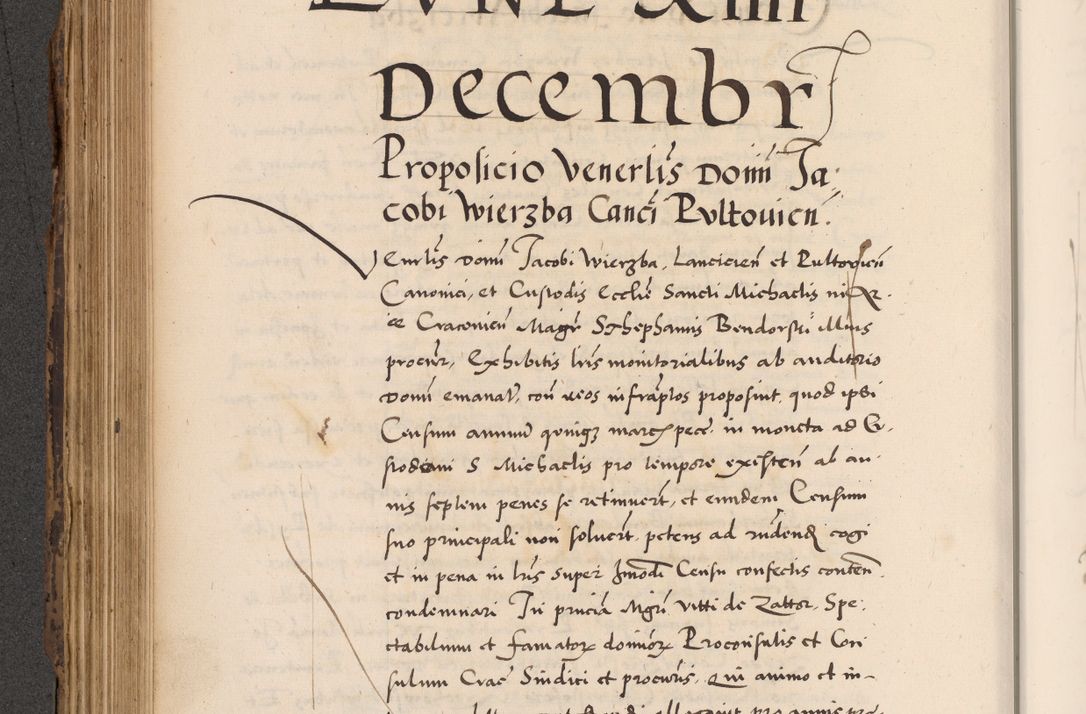 LVNE XIIII
Decembr
Proposicio Venerlis Domi Ja:
cobi Wierzba Canci Pultouien.
Venrlis Domi Jacobi Wierzba, Lancicien et Pultouien
Canonici, et Custodis Ecclie Sancti Michaelis in Ar:
ce Cracouien Magr Sthephanus Bendorski illius
procur, Exhibitis lris monitorialibus ab auditorio
Domi emanat, con reos infraptos proposuit, quod ipsi
Censum annuu quinqz marcz pece. in moneta ad Cu-
stodiam S Michaelis pro tempore existen ab an-
nis septem penes se retinuert, et eundem Censum
suo principali non soluert, petens ad rndend cogi
et in pena in lris super Jmodi Censu confectis conten
condemnari In pncia Mgri Vitti de Zattor, Spe:
ctabilium et famatorz dominorz Proconsulis et Con
sulum Crac Sindici et procuris, Qui animo et in-